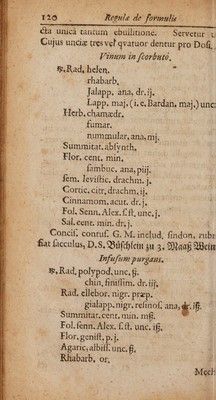 120 Regulæ de formulis
cta unicâ tantum ebullitione. Servetur u
Cujus unciæ tres vel qvatuor dentur pro Dosi.
Vinum in scorbuto.
℞. Rad, helen.
rhabarb.
Jalapp. ana, dr. ij.
Lapp. maj. (i. e. Bardan. maj.) unc
Herb. chamædr.
fumar.
nummular. ana, mj.
Summitat. absynth.
Flor. cent. min.
sambuc. ana, piij.
sem. levistic. drachm. j.
Cortic. citr. drachm. ij.
Cinnamom. acut. dr. j.
Fol. Senn. Alex. s. st. unc. j.
Sal. cent. min. dr. j.
Concis. contus. G. M. includ. sindon. rubr
fiat sacculus, D. S. Büschlein zu 3. Maaß Wein
Infusum purgans.
℞. Rad, polypod. unc. ß.
chin. finissim. dr. iij.
Rad. ellebor. nigr. præp.
gialapp. nigr. resinos. ana, dr. iß.
Summitat. cent. min. mß.
Fol. senn. Alex. s. st. unc. iß.
Flor. genist. p. j.
Agaric. albiss. unc. ß.
Rhabarb. or.
Mech